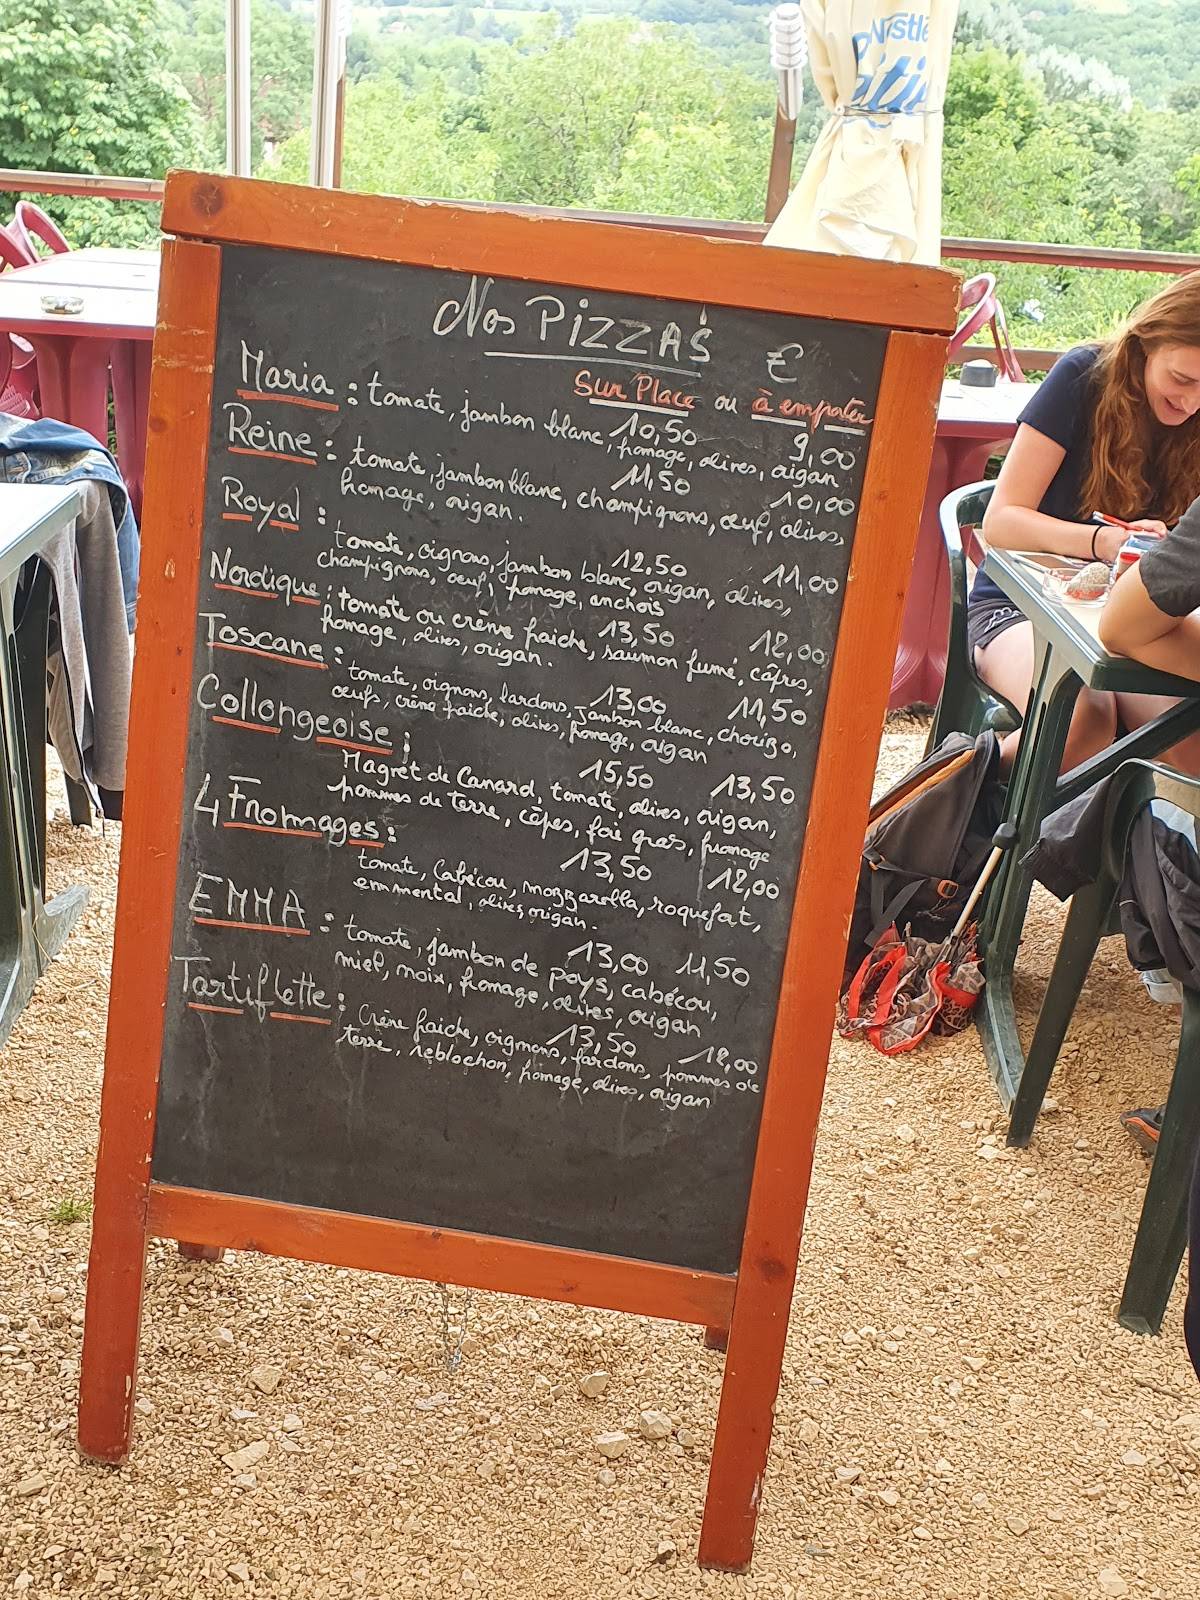 Nestlé
Nos PIZZAS
€
Sur Place ou à emporter
Maria : 10,50 9,00
tomate, jambon blanc, fromage, olives, origan
Reine : 11,50 10,00
tomate, jambon blanc, champignons, œuf, olives,
fromage, origan.
Royal : 12,50 11,00
tomate, oignons, jambon blanc, origan, olives,
champignons, oeuf, fromage, anchois
Nordique : 13,50 12,00
tomate ou crème fraiche, saumon fumé, câpres,
fromage, olives, origan.
Toscane : 13,00 11,50
tomate, oignons, lardons, jambon blanc, chorizo,
oeufs, crème fraiche, olives, fromage, origan
Collongeoise : 15,50 13,50
Magret de Canard, tomate, olives, origan,
pommes de terre, cêpes, foie gras, fromage
4 Fromages : 13,50 12,00
tomate, Cabécou, mozzarella, roquefort,
emmental, olives, origan.
EMMA : 13,00 11,50
tomate, jambon de pays, cabécou,
miel, noix, fromage, olives, origan
Tartiflette : 13,50 12,00
Crème fraiche, oignons, lardons, pommes de
terre, reblochon, fromage, olives, origan